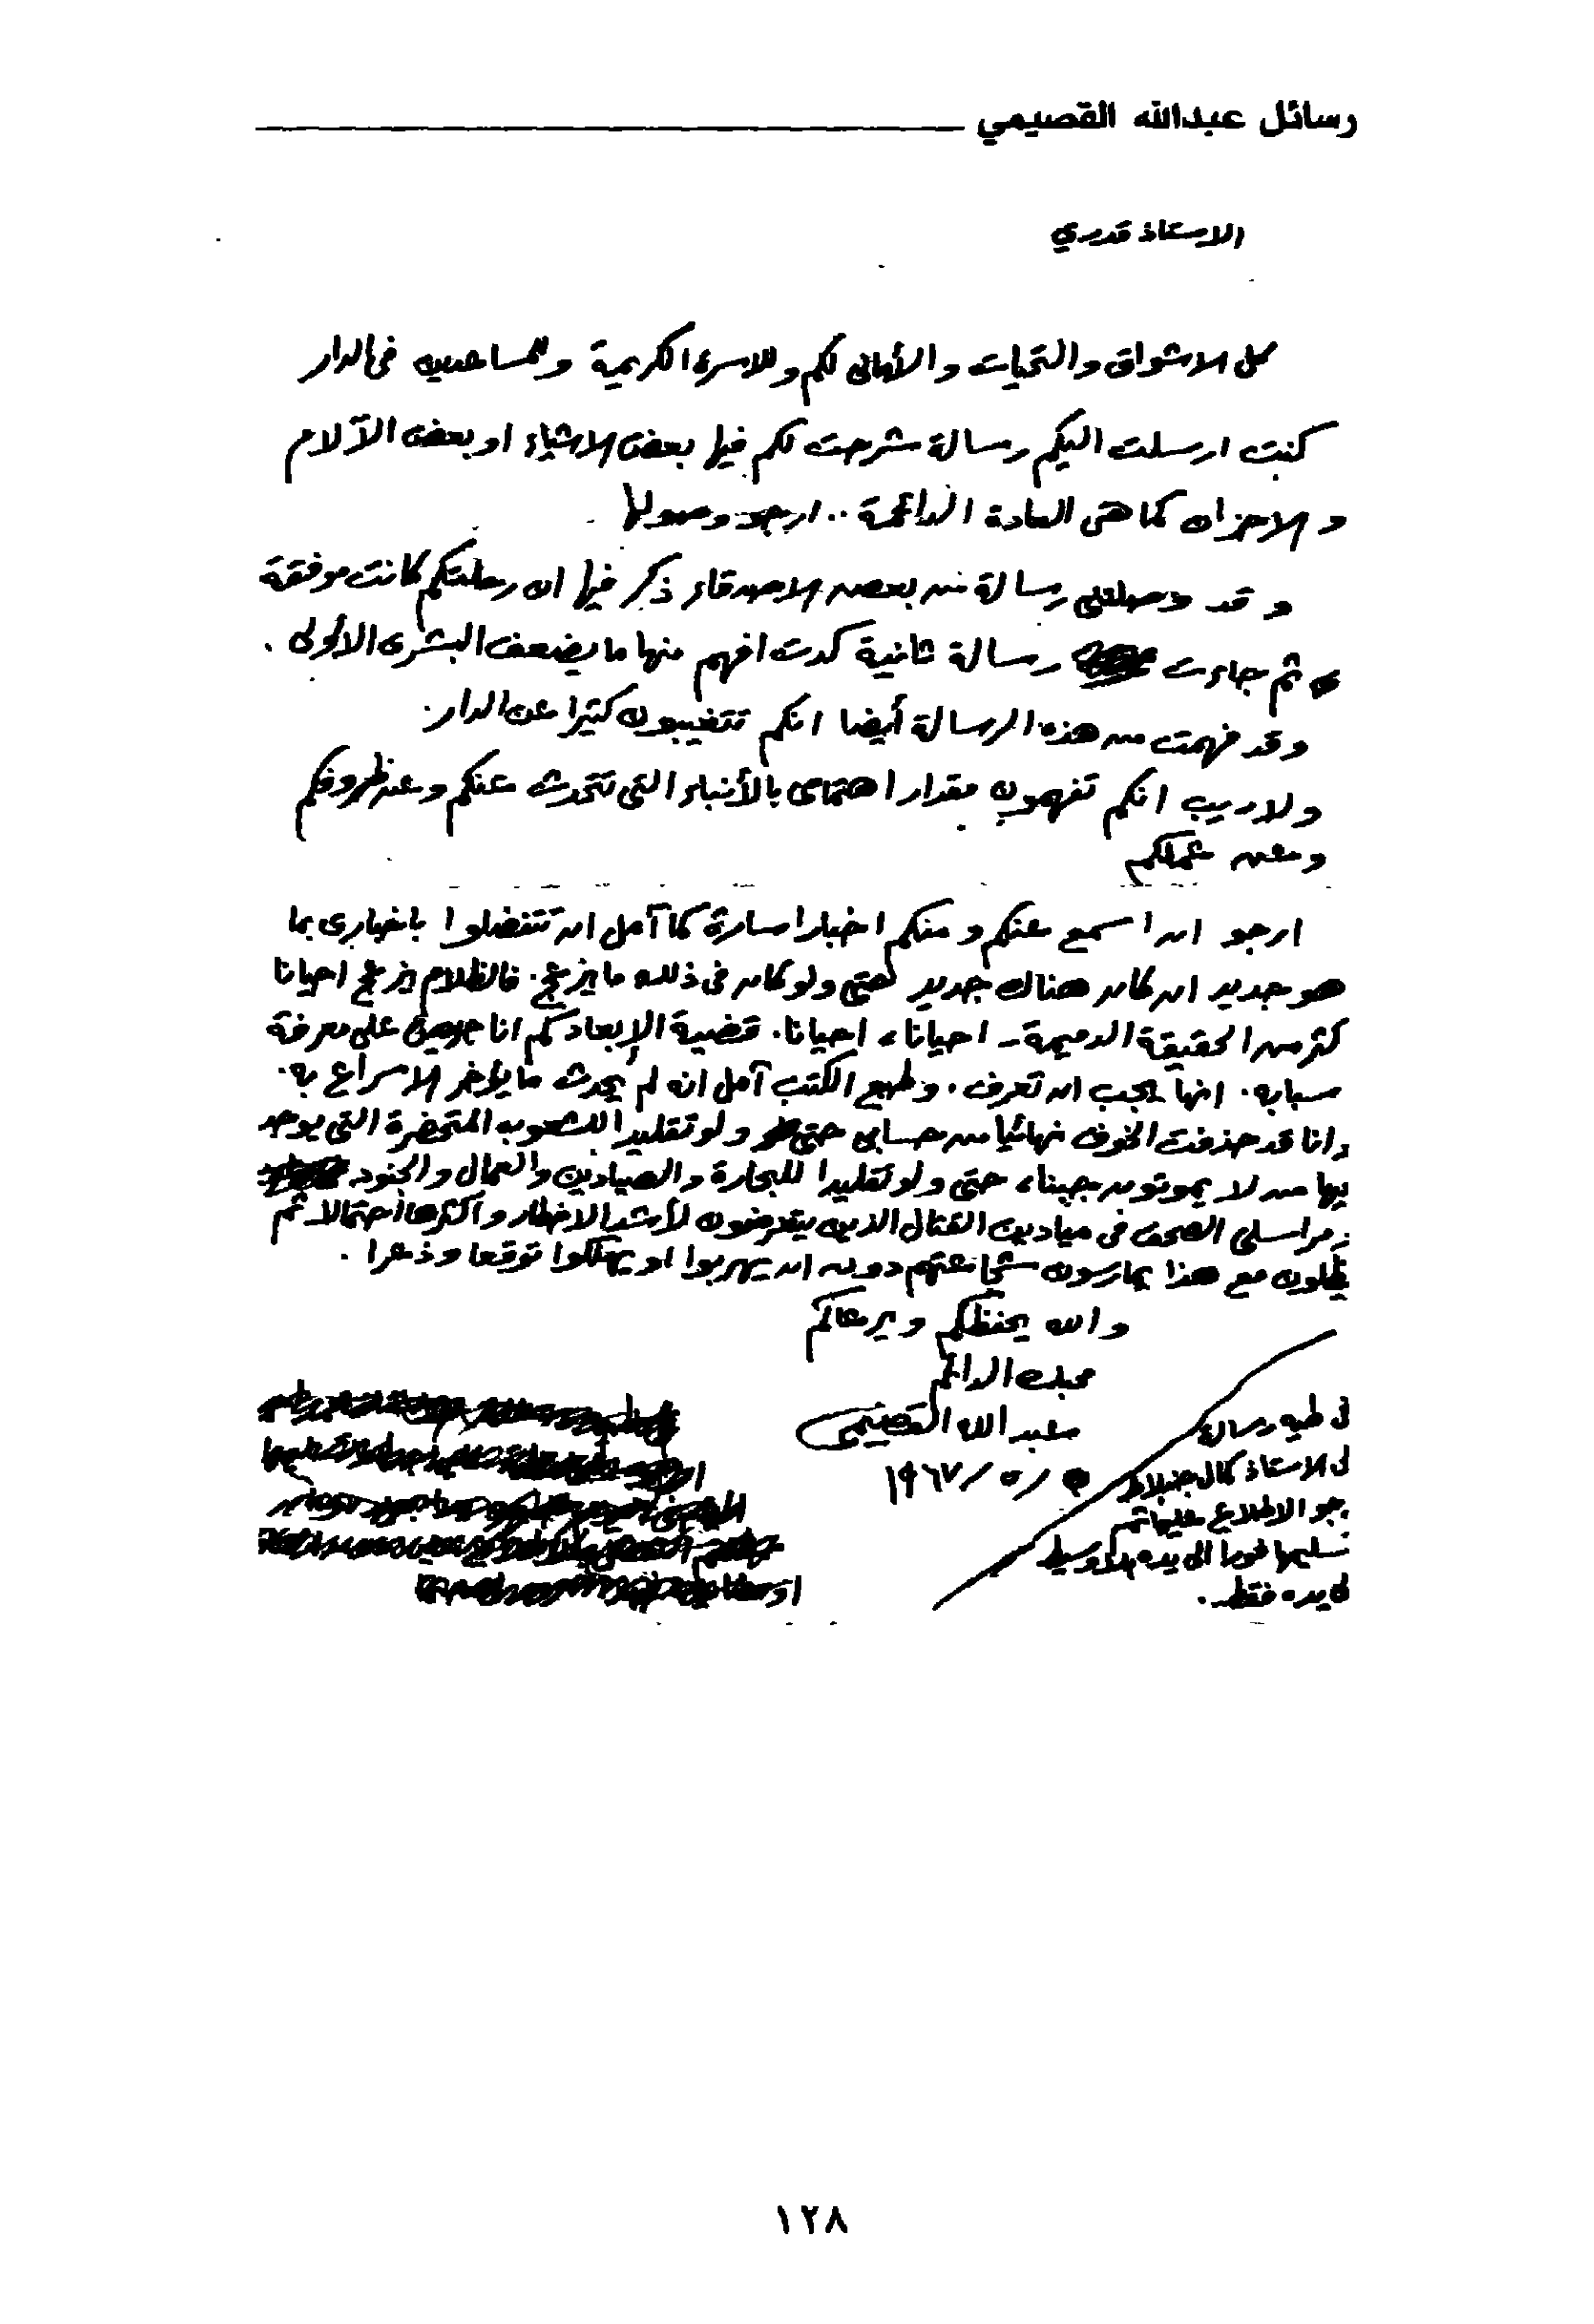 رسائل عبدالله القصيمي
الاستاذ قدري
كل الاشواق والتحيات والأماني لكم وللاسرة الكريمة وللمساعدين في الدار
كنت ارسلت اليكم رسالة شرحت لكم فيها بعض الاشياء او بعض الآلام
والاحزان كما هي العادة الدائمة .. ارجو وصولها
وقد وصلتني رسالة من بعض الاصدقاء ذكر فيها ان رحلتكم كانت موفقة
ثم جاءت رسالة ثانية كدت افهم منها ما يضعف البشرى الأولى .
وقد فهمت من هذه الرسالة أيضا انكم تتغيبون كثيرا عن الدار .
ولا ريب انكم تفهمون مقدار اهتمامي بالأنباء التي تتحدث عنكم وعن ظروفكم
وعن عملكم
ارجو ان اسمع عنكم ومنكم اخبارا سارة كما آمل ان تتفضلوا باخباري بما
هو جديد ان كان هناك جديد حتى ولو كان في ذلك ما يزعج . فالظلام يزعج احيانا
كثر من الحقيقة الدميمة - احيانا ، احيانا . قضية الإبعاد كم انا حريص على معرفة
سبابه . انها يجب ان تعرف . وطبع الكتب آمل انه لم يحدث ما يؤخر الاسراع به .
وانا قد حذفت الخوف نهائيا من حسابي حتى ولو تقليدا للشعوب المتحضرة التي يوجد
يها من لا يموتون جبنا ، حتى ولو تقليدا للبحارة والصيادين والعمال والجنود
مراسلي الصحف في ميادين القتال الذين يتعرضون لأشد الاخطار وأكثرها احتمالا ثم
يظلون مع هذا يمارسون شجاعتهم دون ان يهربوا او يهلكوا توقعا وذعرا .
والله يحفظكم ويرعاكم
محبك الدائم
عبد الله القصيمي
٥ / ١٩٦٧
في طيه رسالة
لى الاستاذ كمال جنبلاط
جو الاطلاع عليها ثم
تسليمها فورا الى يده بلا وسيط
لى يده فقط .
١٢٨